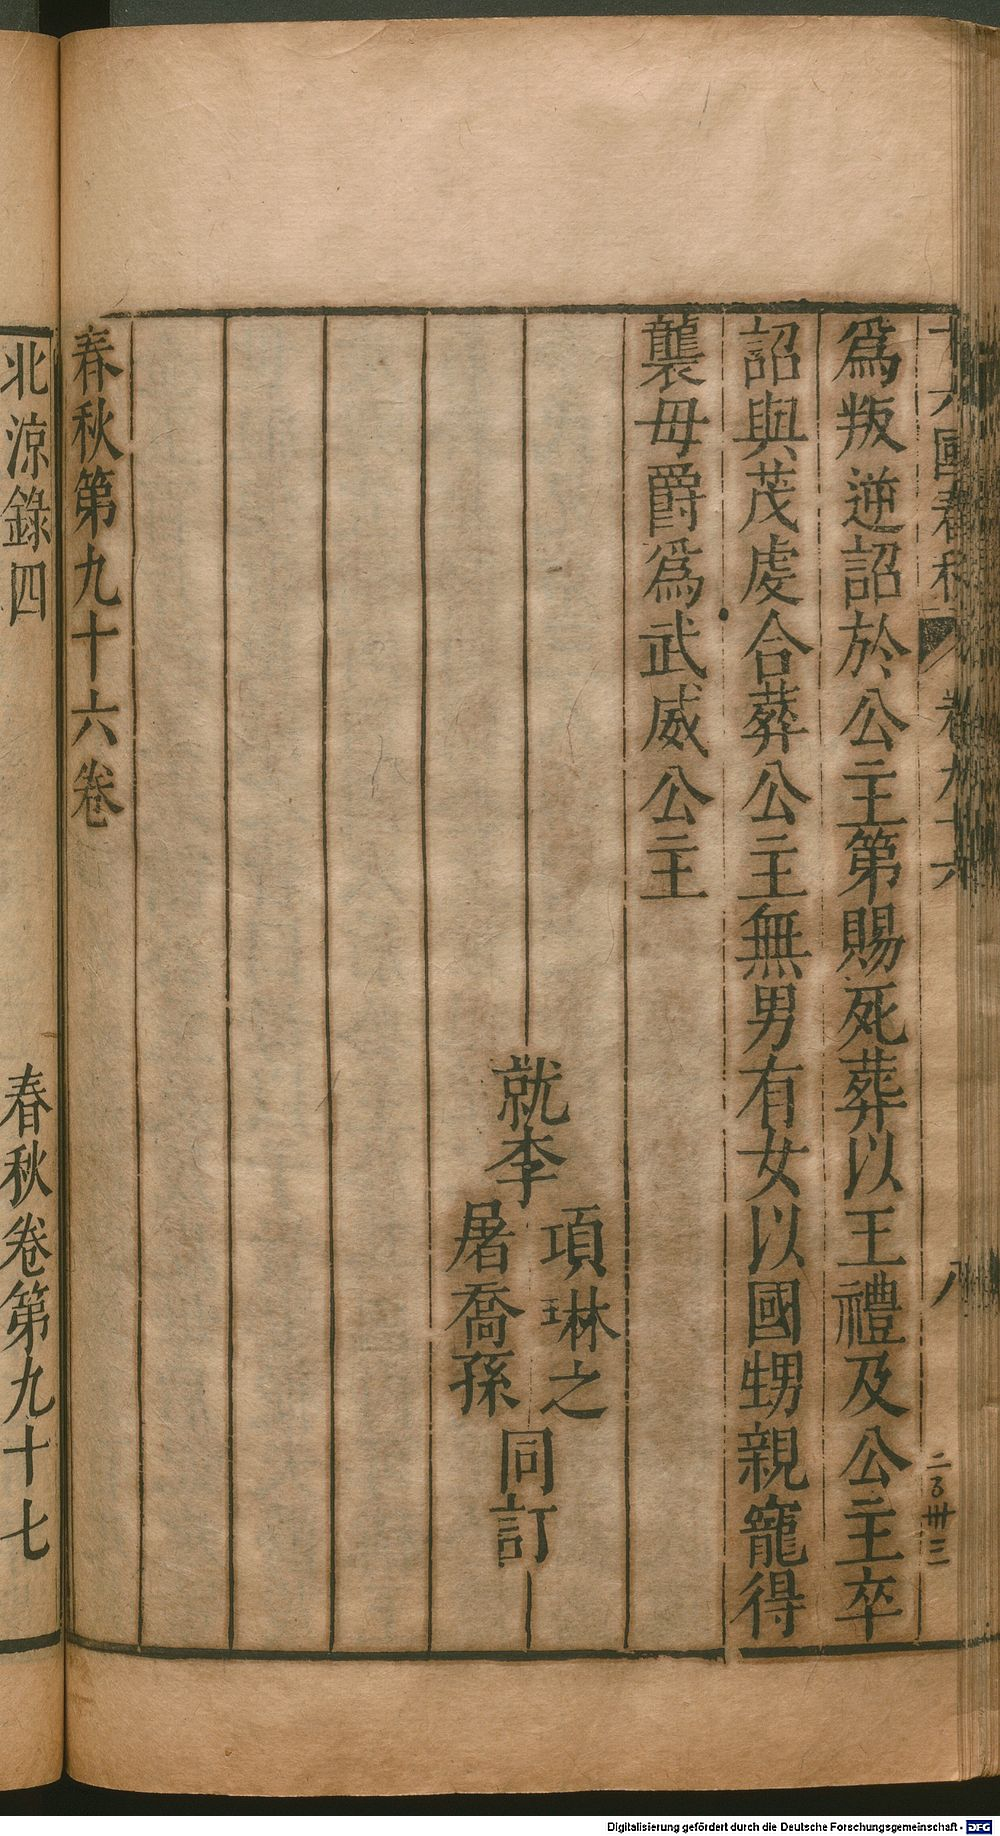 十六國春秋 卷九十六 八
二百卅三
為叛逆詔於公主第賜死葬以王禮及公主卒
詔與茂虔合葬公主無男有女以國甥親寵得
襲母爵為武威公主
就李 項琳之 屠喬孫 同訂
春秋第九十六卷
北涼錄四 春秋卷第九十七
Digitalisierung gefördert durch die Deutsche Forschungsgemeinschaft - DFG